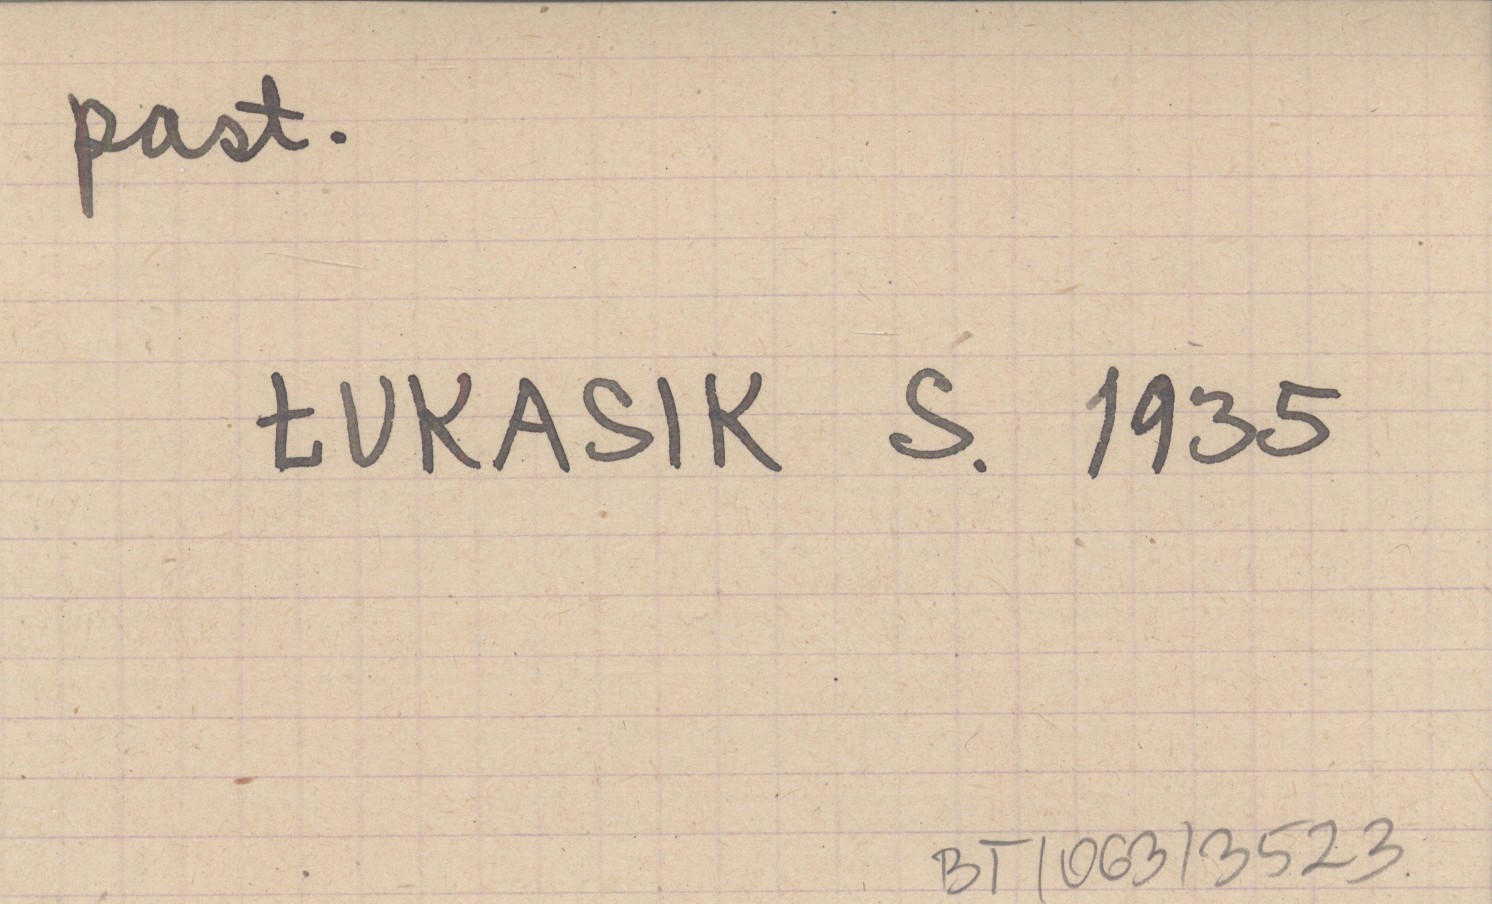 past.
ŁUKASIK S. 1935
BT/063/3523.